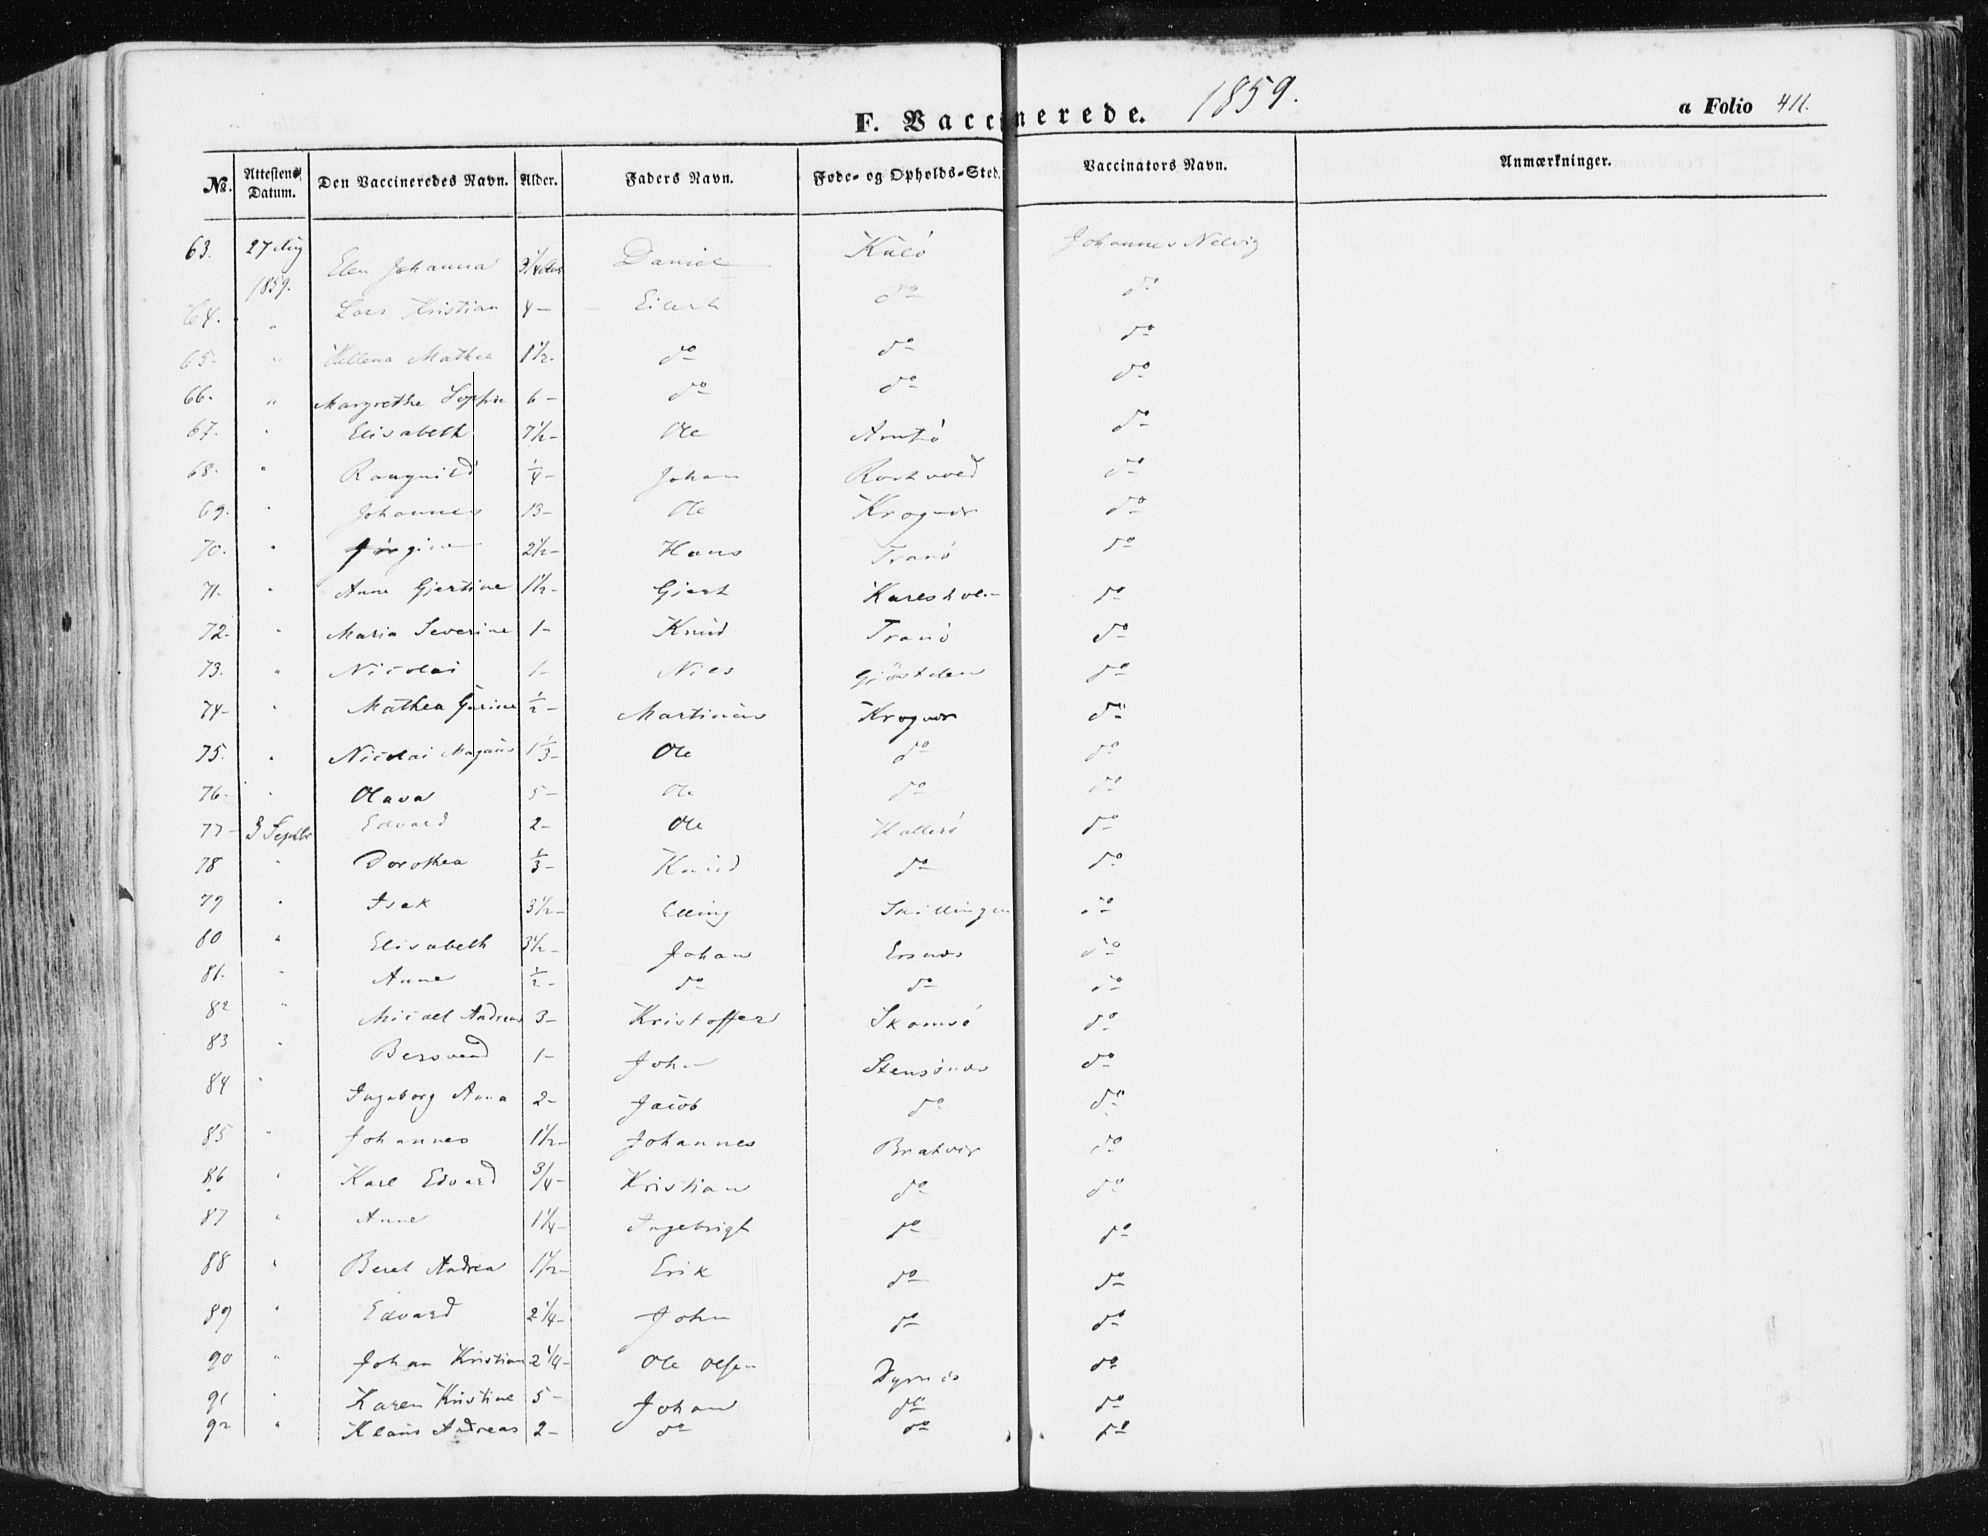 F. Vaccinerede. 1859. a Folio 411.
No. Attestens Datum. Den Vaccineredes Navn. Alder. Faders Navn. Føde- og Opholds-Sted. Vaccinators Navn. Anmærkninger.
63. 27 Aug 1859. Elen Johanna Daniel Kulö Johannes Nelvig
64. " Lars Kristian 4 - Eilert do do
65- " Hellena Mathea 1 1/2 - do do do
66. " Margrethe Sophie 6 - do do do
67. " Elisabeth 7 1/2 - Ole do
68. " Rangnild 1/4 - Johan do
69. " Johannes 13 - Ole Krognæs do
70. " Jörgine 2 1/2 - Hans Tranö do
71. " Anne Gjertine 1 1/2 - Gjert do
72- " Maria Severine 1 - Knud Tranö do
73. " Nicolai 1 - Niels do
74- " Mathea Gurine 1/2 - Martinus Krognæs do
75. " Nicolai Magnus 1 1/3 - Ole do do
76- " Olava 5 - Ole do do
77- 3 Septbr Edvard 2 - Ole do
78 " Dorothea 1/3 - Knud do do
79 " Isak 3 1/2 - Elling Skillingen do
80 " Elisabeth 3 1/2 - Johan do
81. " Anne 1/2 - do do do
82 " Micael Andreas 3 - Kristoffer Skomsö do
83 " Bersvend 1 - John Stensönæs do
84 " Ingeborg Anna 2 - Jacob do do
85 " Johannes 1 1/2 - Johannes Bratvær do
86 " Karl Edvard 3/4 - Kristian do do
87 " Anne 1 1/4 - Ingebrigt do do
88 " Beret Andrea 1 1/2 - Erik do do
89 " Edvard 2 1/4 - John do do
90 " Johan Kristian 2 1/4 - Ole Olsen Dyrnæs do
91 " Karen Kristine 5 - Johan do do
92 " Klaus Andreas 2 - do do do